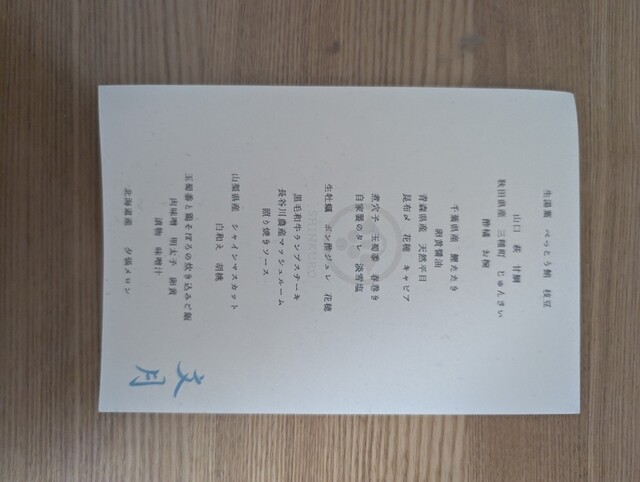 生湯葉 べっとう鮪 枝豆
山口 萩 甘鯛
秋田県産 三種町 じゅんさい
酢橘 お椀
千葉県産 鰹たたき
卵黄醤油
青森県産 天然平目
昆布〆 花穂 キャビア
煮穴子 玉蜀黍 春巻き
自家製のタレ 淡雪塩
生牡蠣 ポン酢ジュレ 花穂
黒毛和牛ランプステーキ
長谷川農産マッシュルーム
照り焼きソース
山梨県産 シャインマスカット
白和え 胡桃
玉蜀黍と鶏そぼろの炊き込みご飯
肉味噌 明太子 卵黄
漬物 味噌汁
北海道産 夕張メロン
文月